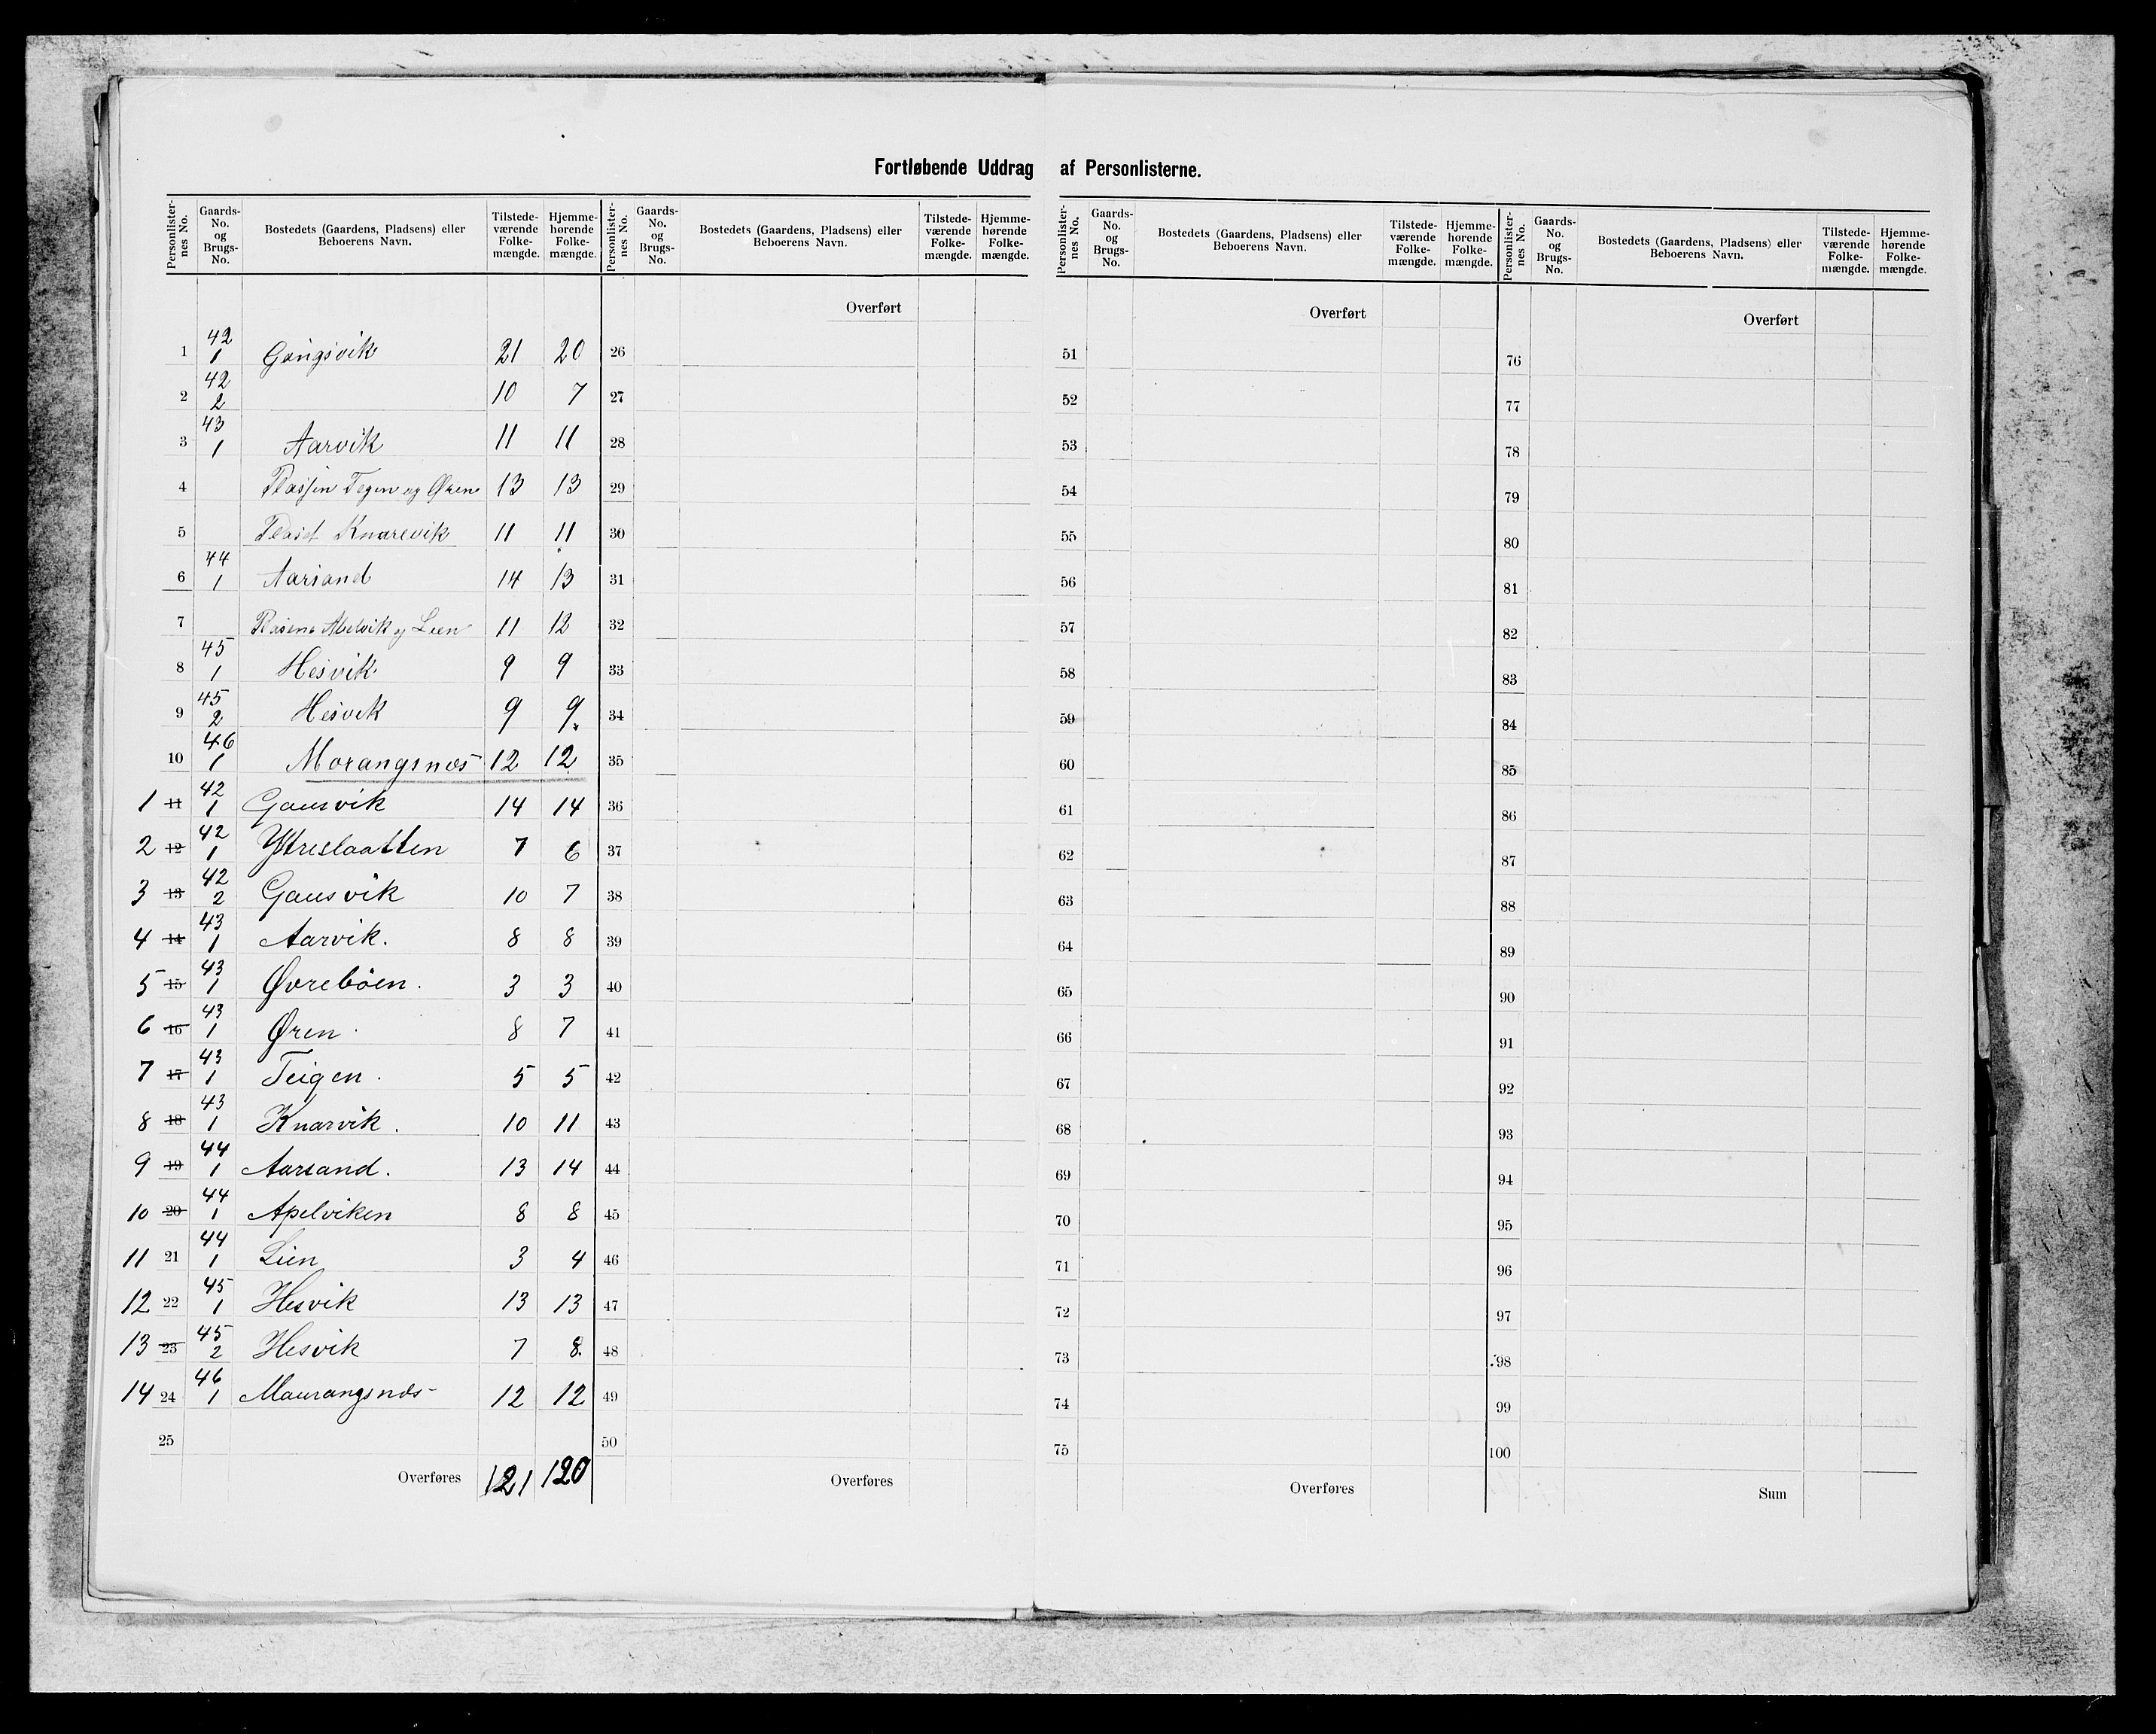 Fortløbende Uddrag af Personlisterne.
Personlisternes No. Gaards-No. og Brugs-No. Bostedets (Gaardens, Pladsens) eller Beboerens Navn. Tilstedeværende Folkemængde. Hjemmehørende Folkemængde.
42
1 1 Gangsvik 21 20
42
2 2 10 7
43
3 1 Aarvik 11 11
4 Tegen og Øren 13 13
5 Pladset Knarevik 11 11
44
6 1 Aarsand 14 13
7 og Lien 11 12
45
8 1 Hesvik 9 9
45
9 2 Hesvik 9 9
46
10 1 Morangsnæs 12 12
42
1 11 1 Gausvik 14 14
42
2 12 1 Ytreslaatten 7 6
42
3 13 2 Gausvik 10 7
43
4 14 1 Aarvik. 8 8
43
5 15 1 Øvrebøen. 3 3
43
6 16 1 Øren. 8 7
43
7 17 1 Teigen. 5 5
43
8 18 1 Knarvik. 10 11
44
9 19 1 Aarsand. 13 14
44
10 20 1 Apelviken 8 8
44
11 21 1 Lien 3 4
45
12 22 1 Hesvik 13 13
45
13 23 2 Hesvik 7 8.
46
14 24 1 Maurangsnæs 12 12
25
Overføres 121 120
Personlisternes No. Gaards-No. og Brugs-No. Bostedets (Gaardens, Pladsens) eller Beboerens Navn. Tilstedeværende Folkemængde. Hjemmehørende Folkemængde.
Overført
26
27
28
29
30
31
32
33
34
35
36
37
38
39
40
41
42
43
44
45
46
47
48
49
50
Overføres
Personlisternes No. Gaards-No. og Brugs-No. Bostedets (Gaardens, Pladsens) eller Beboerens Navn. Tilstedeværende Folkemængde. Hjemmehørende Folkemængde.
Overført
51
52
53
54
55
56
57
58
59
60
61
62
63
64
65
66
67
68
69
70
71
72
73
74
75
Overføres
Personlisternes No. Gaards-No. og Brugs-No. Bostedets (Gaardens, Pladsens) eller Beboerens Navn. Tilstedeværende Folkemængde. Hjemmehørende Folkemængde.
Overført
76
77
78
79
80
81
82
83
84
85
86
87
88
89
90
91
92
93
94
95
96
97
98
99
100
Sum